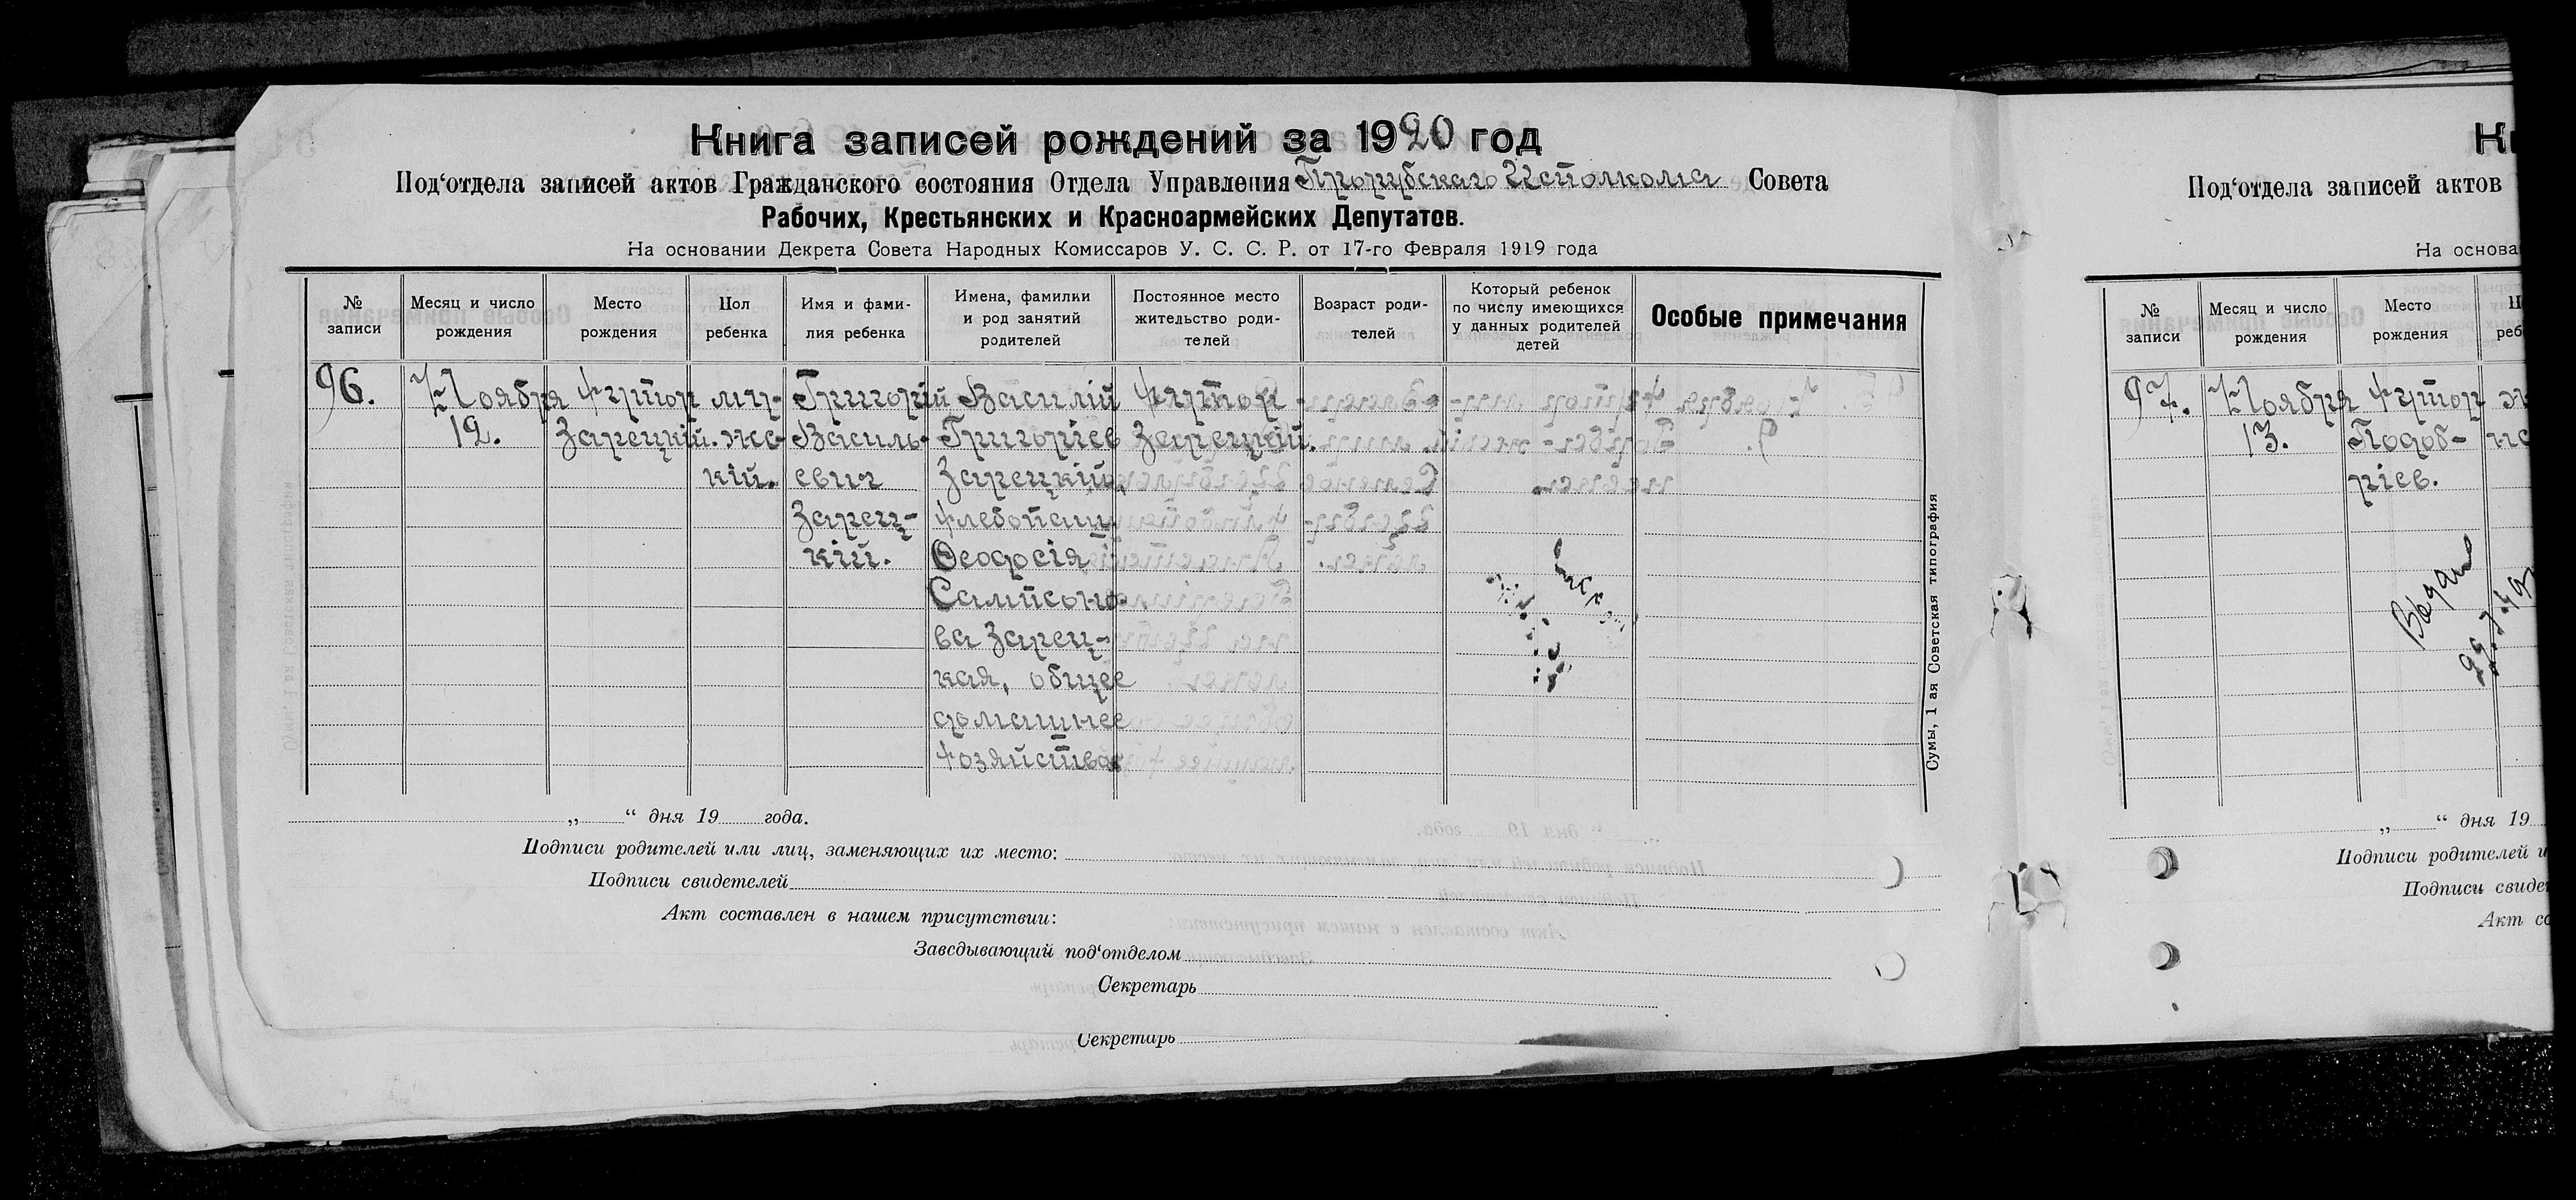 Книга записей рождений за 1920 год
Под‘отдела записей актов Гражданского состояния Отдела Управления Исполкома Совета
Рабочих, Крестьянских и Красноармейских Депутатов.
На основании Декрета Совета Народных Комиссаров У. С. С. Р. от 17-го Февраля 1919 года
№ записи
Месяц и число рождения
Место рождения
Пол ребенка
Имя и фами-
лия ребенка
Имена, фамилии
и род занятий
родителей
Постоянное место
жительство роди-
телей
Возраст роди-
телей
Который ребенок
по числу имеющихся
у данных родителей
детей
Особые примечания
96.
Ноября
12.
хутор
Зарецкий.
му-
жс-
кій.
Григорій
Василь-
евич
Зарец-
кій.
Василій
Григоріев
Зарецкий,
хлебопаш.
Ѳеодосія
Сампсоно-
ва Зарец-
кая, общее
домашнее
хозяйство
хутор
Зарецкий.
„ “ дня 19 года.
Подписи родителей или лиц, заменяющих их место:
Подписи свидетелей
Акт составлен в нашем присутствии:
Заведывающий под‘отделом
Секретарь
Секретарь
Сумы, 1 ая Советская типография
Под‘отдела записей актов
На основа
№ записи
Месяц и число рождения
Место рождения
97.
Ноября
13.
хутор
Подоб-
ріев.
„ “ дня 19
Подписи родителей и
Подписи свиде
Акт со